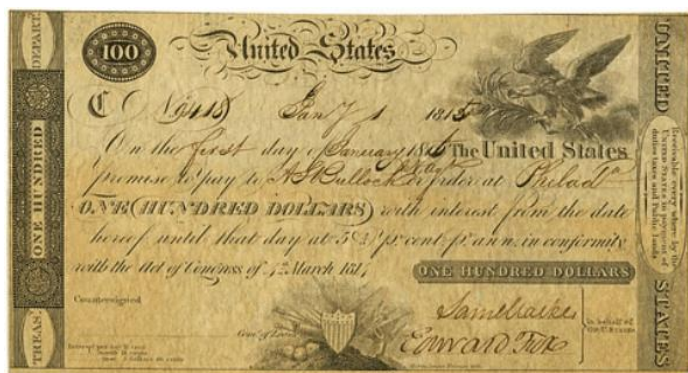 DEPART.
100
United States
C No 9418 Jany 1 1815
On the first day of January 1816 The United States
promise to pay to A S Bulloch or order at Philada
ONE (HUNDRED DOLLARS) with interest from the date
hereof until that day at 5⅖ pr cent pr ann. in conformity
with the Act of Congress of 4th March 1814
ONE HUNDRED DOLLARS
Countersigned
Comr. of Loans
Edward Fox
In behalf of
the U. States
ONE HUNDRED
TREASY.
UNITED
STATES
Receivable every where by the
UNITED STATES in payment of
duties taxes and Public lands